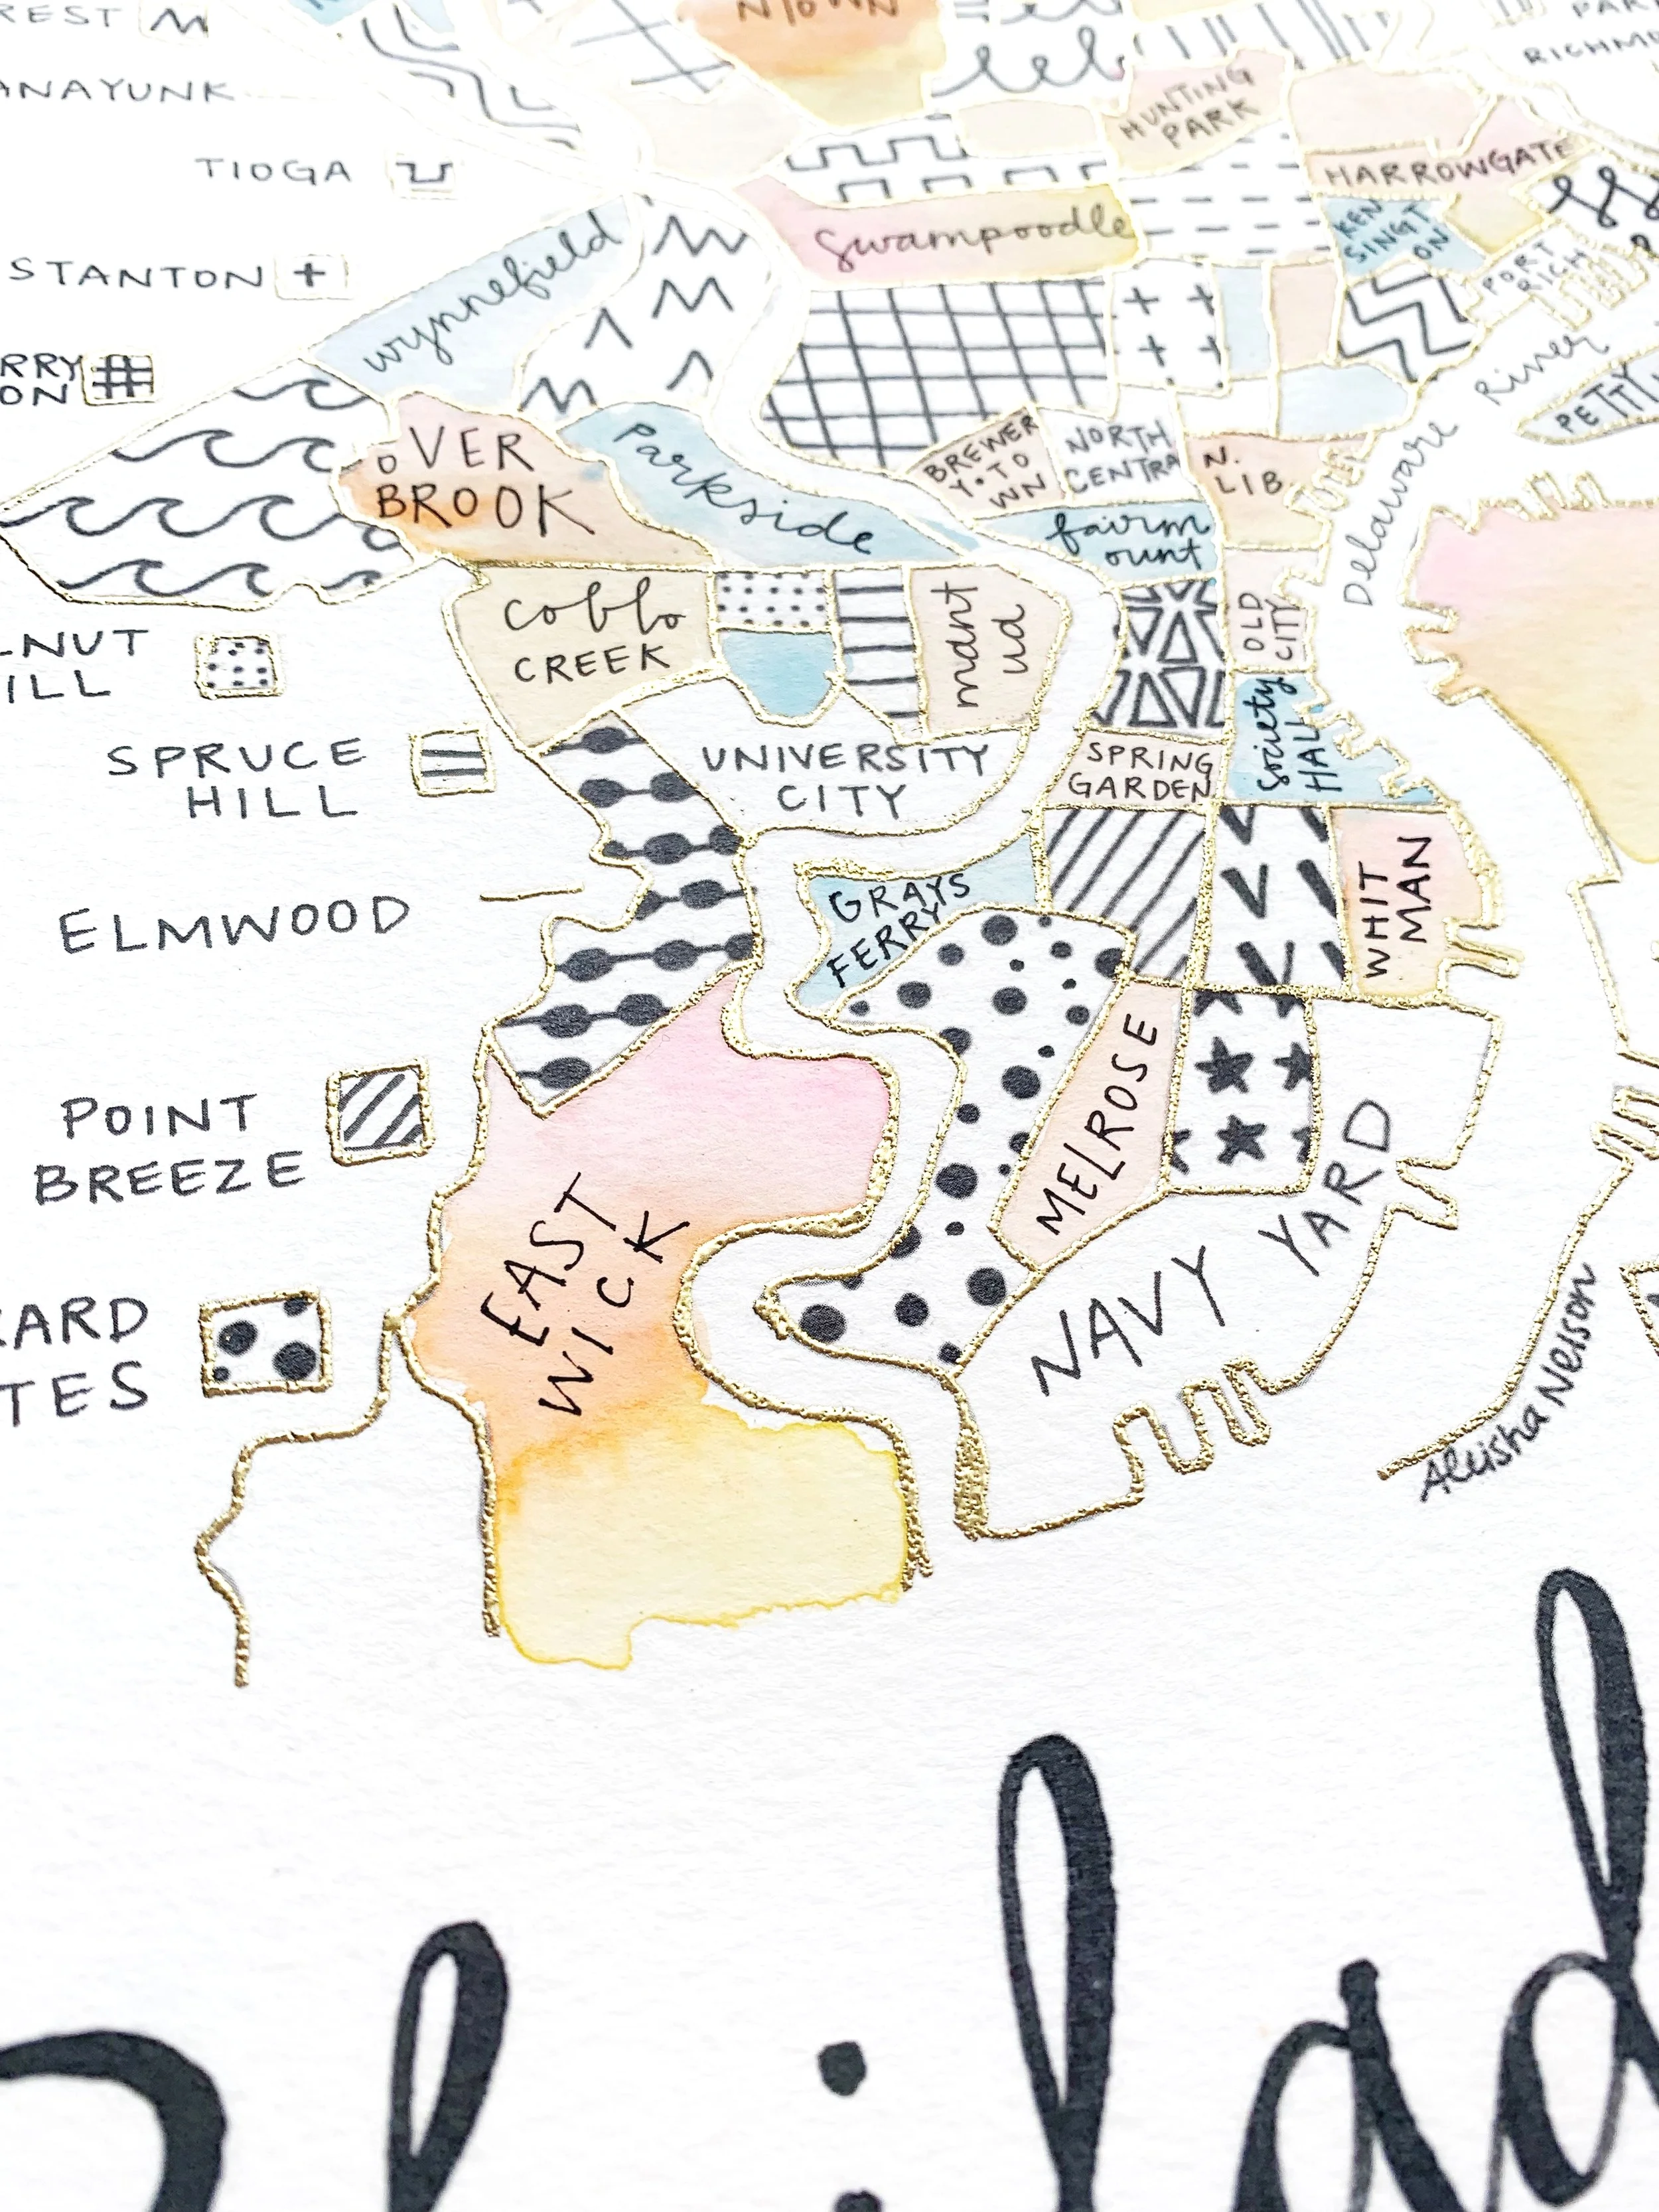 REST
NTOWN
PARK
RICHMO
ANAYUNK
HUNTING
PARK
TIOGA
HARROWGATE
STANTON
Swampoodle
KEN
SINGT
ON
PORT
RICH
wynnefield
RRY
ON
Delaware River
PETTY
OVER
BROOK
Parkside
BREWER
Y•TO
WN
NORTH
CENTRA
N.
LIB
fairm
ount
LNUT
ILL
Cobbs
CREEK
mant
ua
OLD
CITY
SPRUCE
HILL
UNIVERSITY
CITY
SPRING
GARDEN
Society
HALL
ELMWOOD
GRAYS
FERRY
WHIT
MAN
POINT
BREEZE
MELROSE
EAST
WICK
NAVY YARD
RARD
TES
Aleisha Nelson
Philad